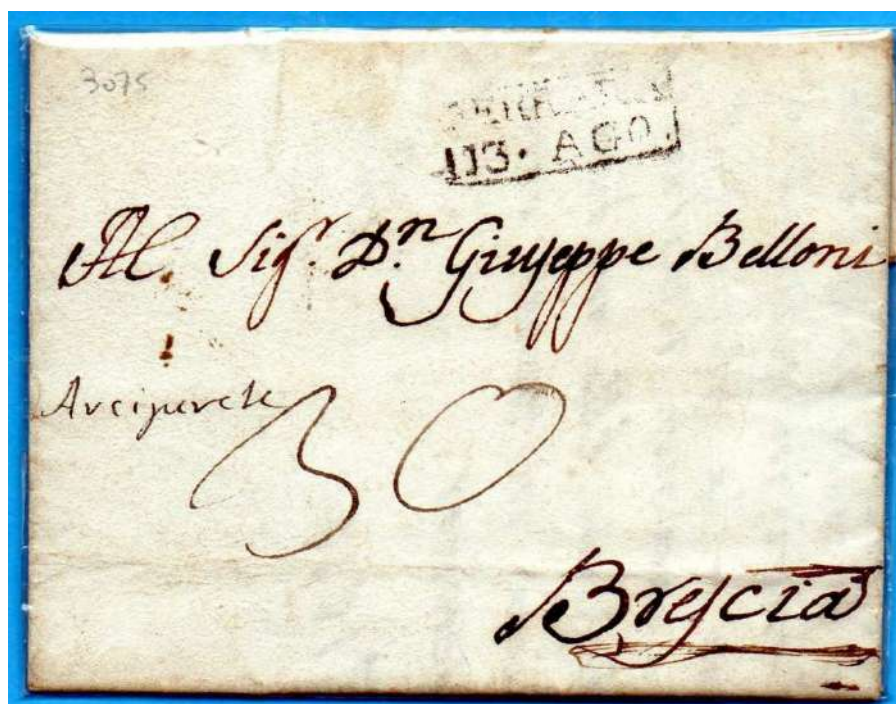 3075
13. AGO.
Al Sig.r D.n Giuseppe Belloni
Arciprete
30
Brescia